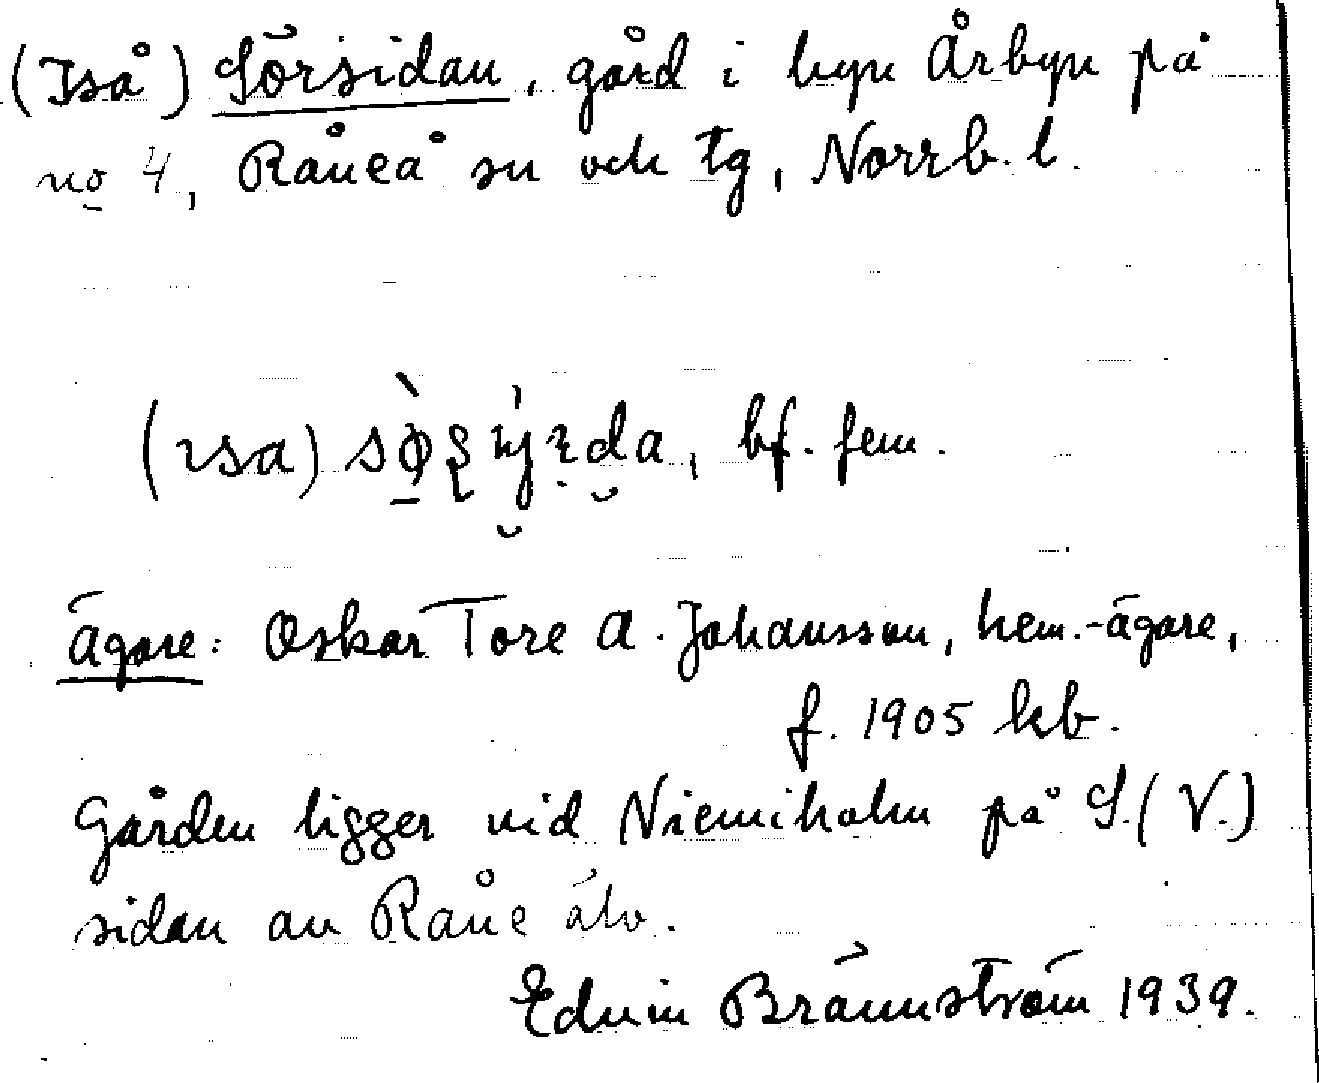 (Iså) Sörsidan, gård i byn Årbyn på
no 4, Råneå sn och tg, Norrb. l.
(ısa) bf. fem.
Ägare: Oskar Tore A. Johansson, hem.-ägare,
f. 1905 kb.
Gården ligger vid Niemiholm på S.(V.)
sidan av Råne älv.
Edvin Brännström 1939.